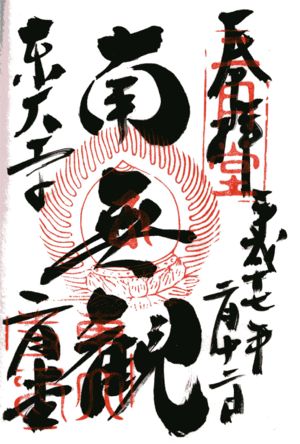 奉拝
平成十七年
二月十二日
南無観
東大寺
二月堂